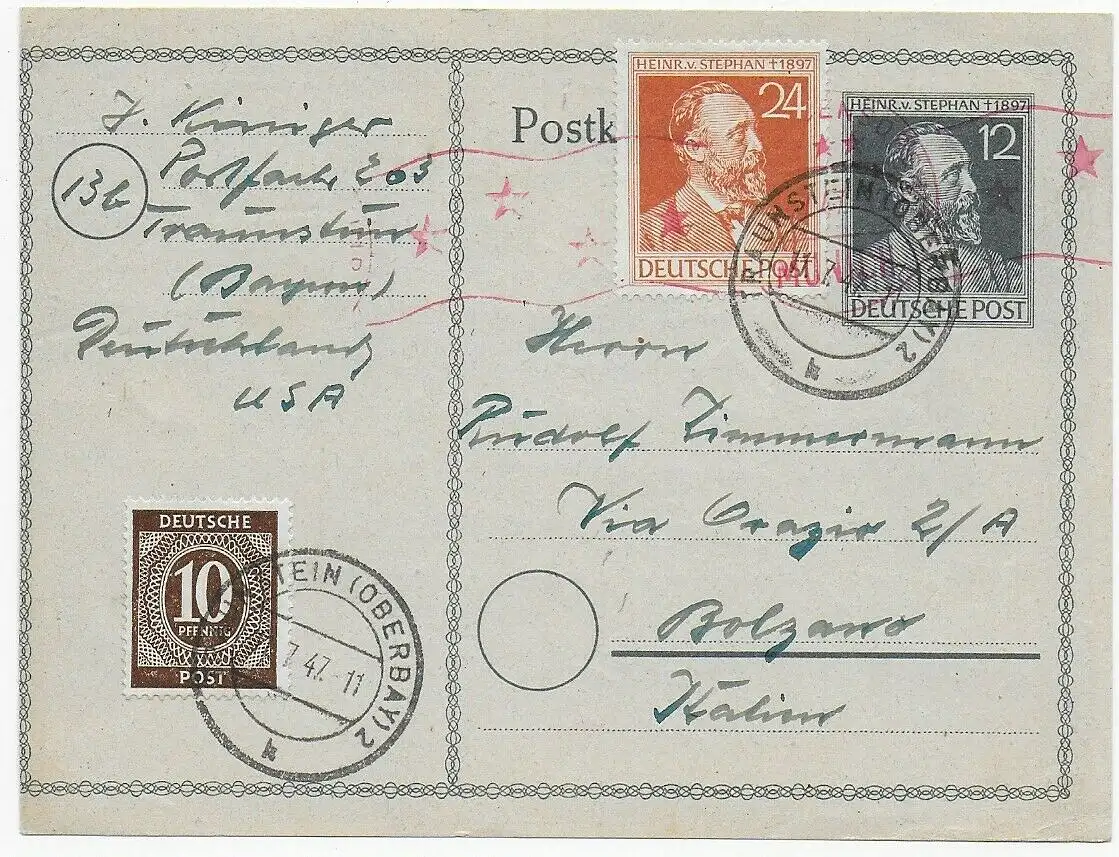 J. Kiniger
13b
Postfach 203
Traunstein
(Bayern)
Deutschland
USA
Postk
HEINR.v.STEPHAN †1897
24
DEUTSCHE POST
HEINR.v.STEPHAN †1897
12
DEUTSCHE POST
TRAUNSTEIN (OBERBAY) 2
k
Herrn
Rudolf Zimmermann
Via Orazio 2/A
Bolzano
Italien
DEUTSCHE
10
PFENNIG
POST
STEIN (OBERBAY) 2
7.47.-11
k